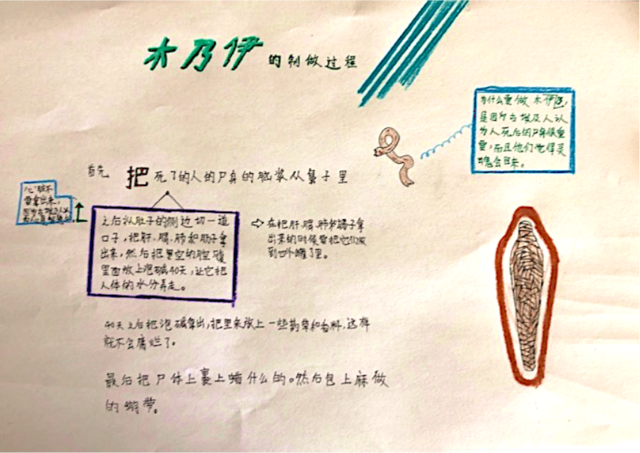 木乃伊的制做过程
为什么要做木乃伊,
是因为古埃及人认
为人死后的尸身很重
要,而且他们觉得灵
魂会回来。
首先 把死了的人的尸身的脑浆从鼻子里
心脏不
需拿出来,
之后从肚子的侧边切一道
口子,把肝、胃、肺和肠子拿
出来,然后把里空的腔
里面放上泡碱40天,让它把
人体的水分弄走。
⇨在把肝、胃、肺和肠子拿
出来的时候要把它们放
到4个罐子里。
40天之后把泡碱拿出,把里头放上一些药草和香料,这样
就不会腐烂了。
最后把尸体上裹上蜡什么的。然后包上麻做
的绷带。